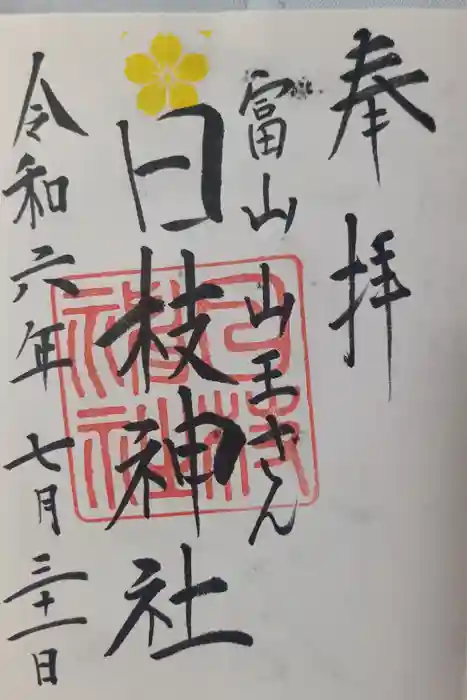 奉拝
富山 山王さん
日枝神社
令和六年七月三十一日
日枝神社